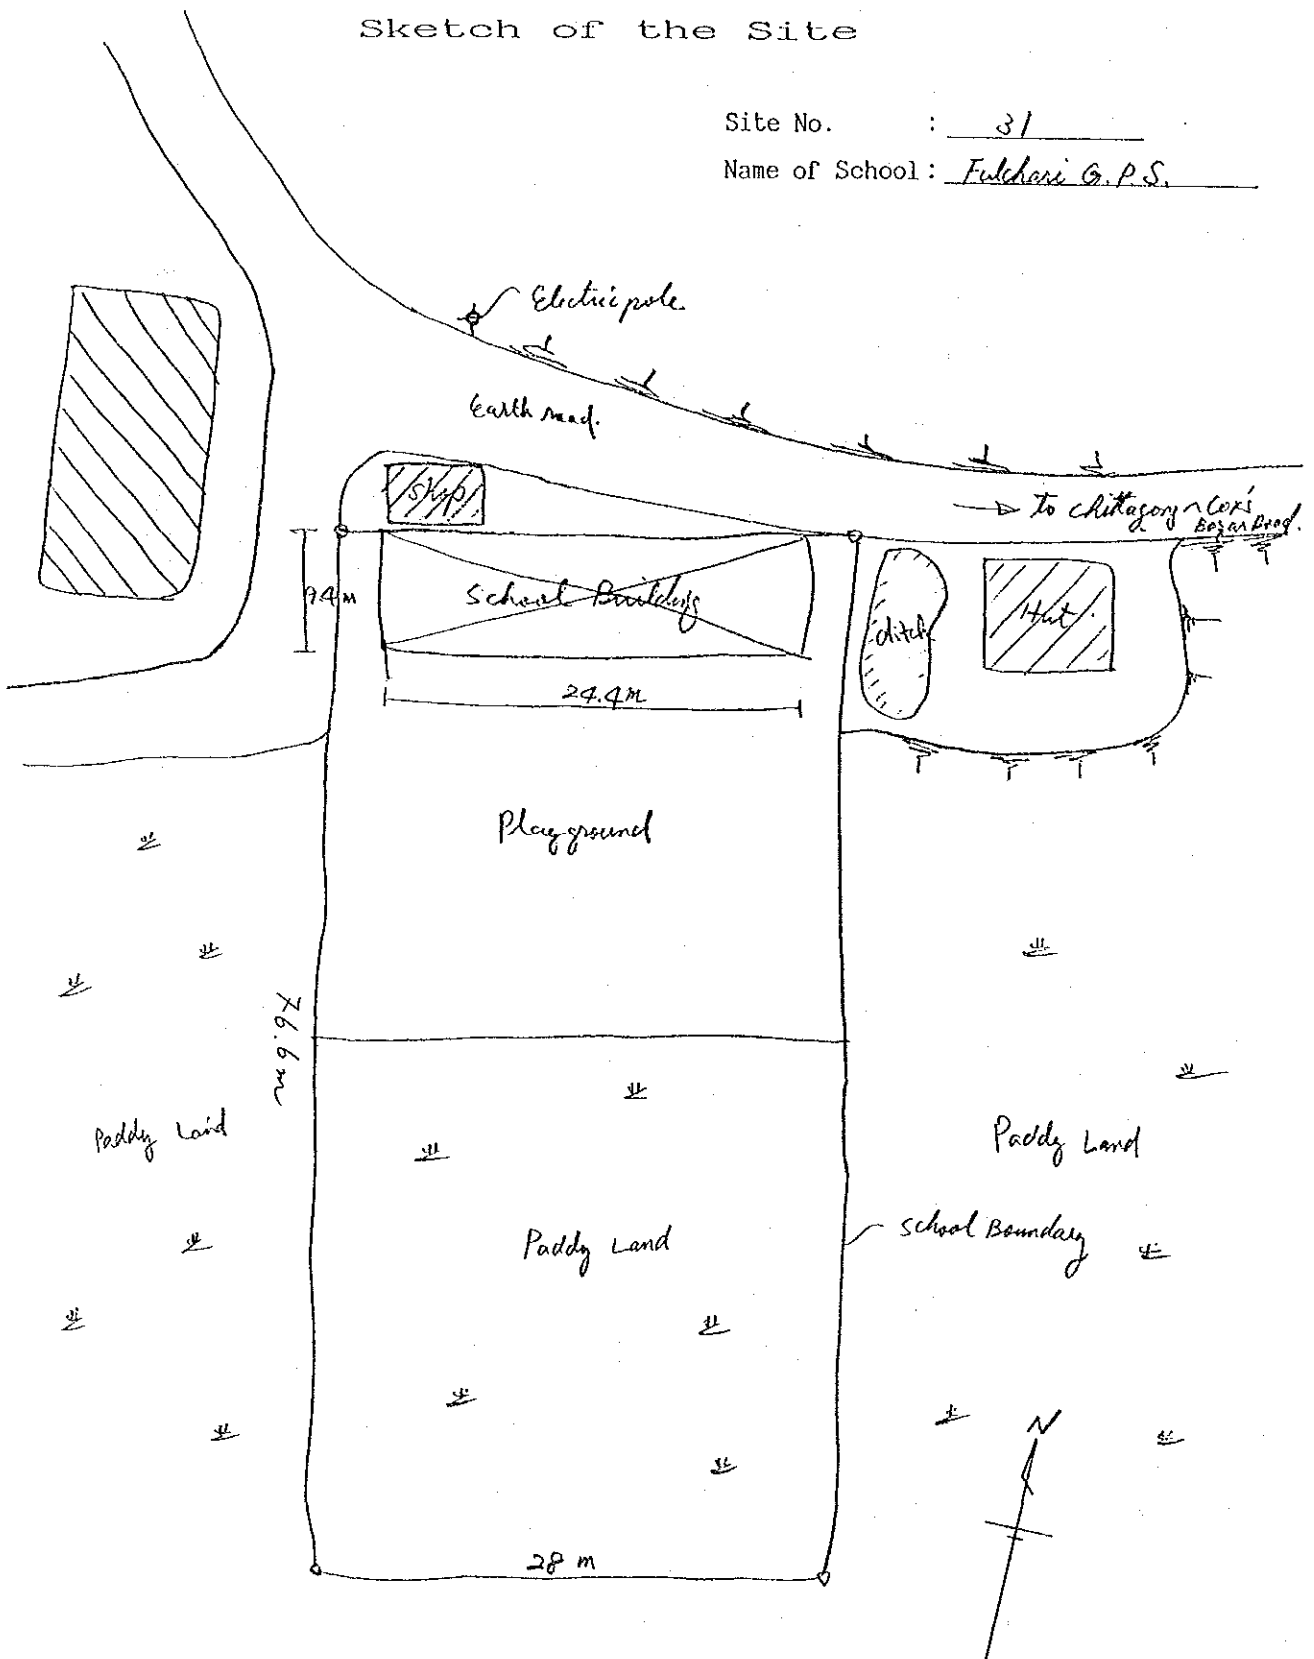 Sketch of the Site
Site No. : 31
Name of School : Fulchari G.P.S.
Electric pole
Earth road.
Shop
to chittagong ~ Cox's
Bazar Road.
School Building
ditch
Hut
24.4m
Playground
76.6m
Paddy Land
Paddy Land
Paddy Land
School Boundary
N
28 m